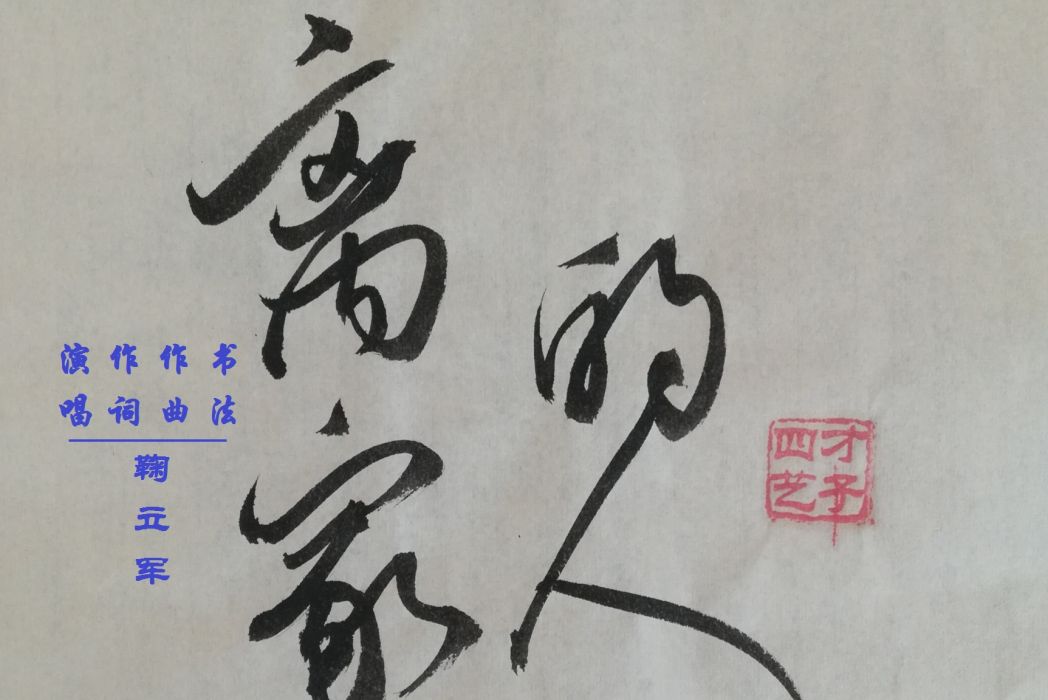 离家
的人
演唱
作词
作曲
书法
鞠立军
才子
四艺